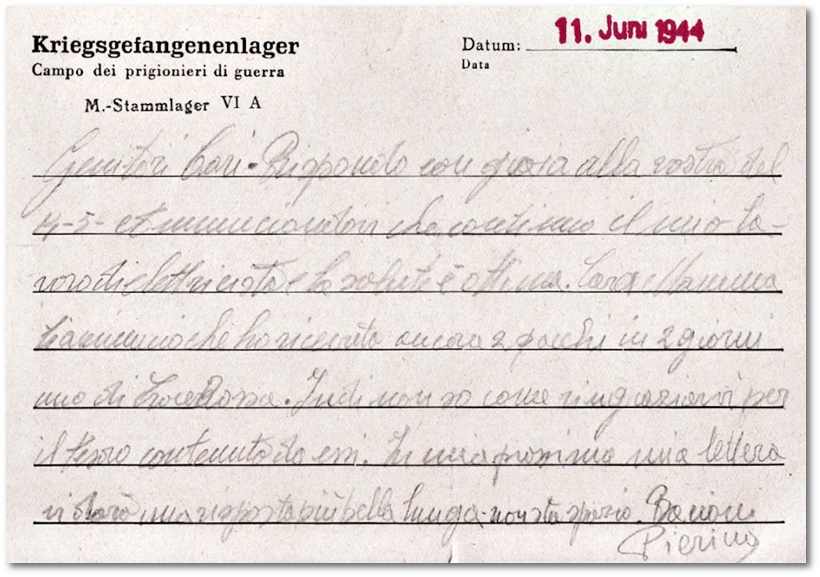 Kriegsgefangenenlager
Campo dei prigionieri di guerra
M.-Stammlager VI A
Datum: 11. Juni 1944
Data
Genitori Cari - Rispondo con gioia alla vostra del
14-5- et annunciandovi che continuo il mio la-
voro di elettricista e la salute è ottima. Cara Mamma
ti annuncio che ho ricevuto ancora 2 pacchi in 2 giorni
uno di Croce Rossa. Indi non so come ringraziarvi per
il tesoro contenuto da essi. In una prossima mia lettera
vi darò una risposta più bella lunga - non sta spazio. Bacioni
Pierino